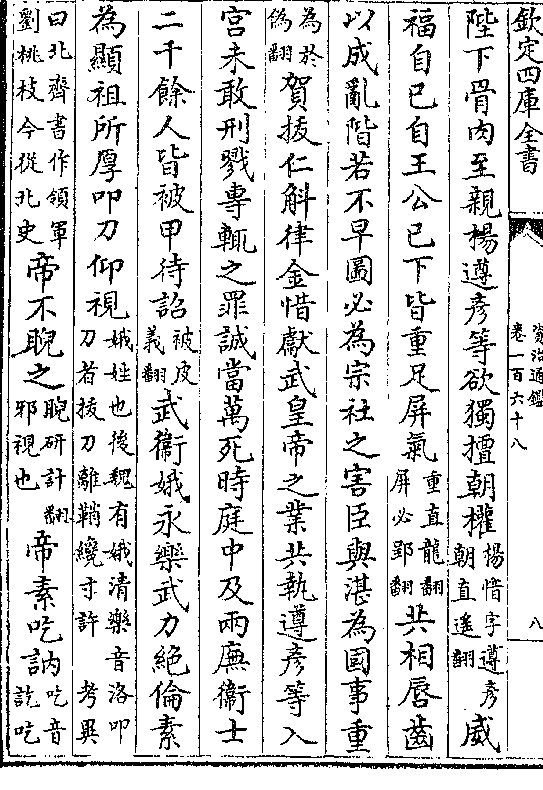 欽定四庫全書
資治通鑑
卷一百六十八
八
陛下骨肉至親楊遵彥等欲獨擅朝權楊愔字遵彥朝直遙翻威
福自已自王公已下皆重足屏氣重直龍翻屏必郢翻共相唇齒
以成亂階若不早圖必為宗社之害臣與湛為國事重
為於偽翻賀拔仁斛律金惜獻武皇帝之業共執遵彥等入
宮未敢刑戮專輒之罪誠當萬死時庭中及兩廡衛士
二千餘人皆被甲待詔被皮義翻武衛娥永樂武力絕倫素
為顯祖所厚叩刀仰視娥姓也後魏有娥清樂音洛叩刀者拔刀離鞘纔寸許考異
曰北齊書作領軍劉桃枝今從北史帝不睨之睨研計翻邪視也帝素吃訥吃音訖吃